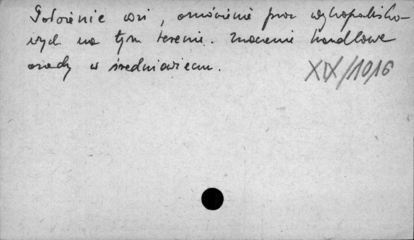 Położenie wsi, omówienie prac wykopalisko-
wych na tym terenie. Znaczenie handlowe
osady w średniowieczu.
XIX/1016